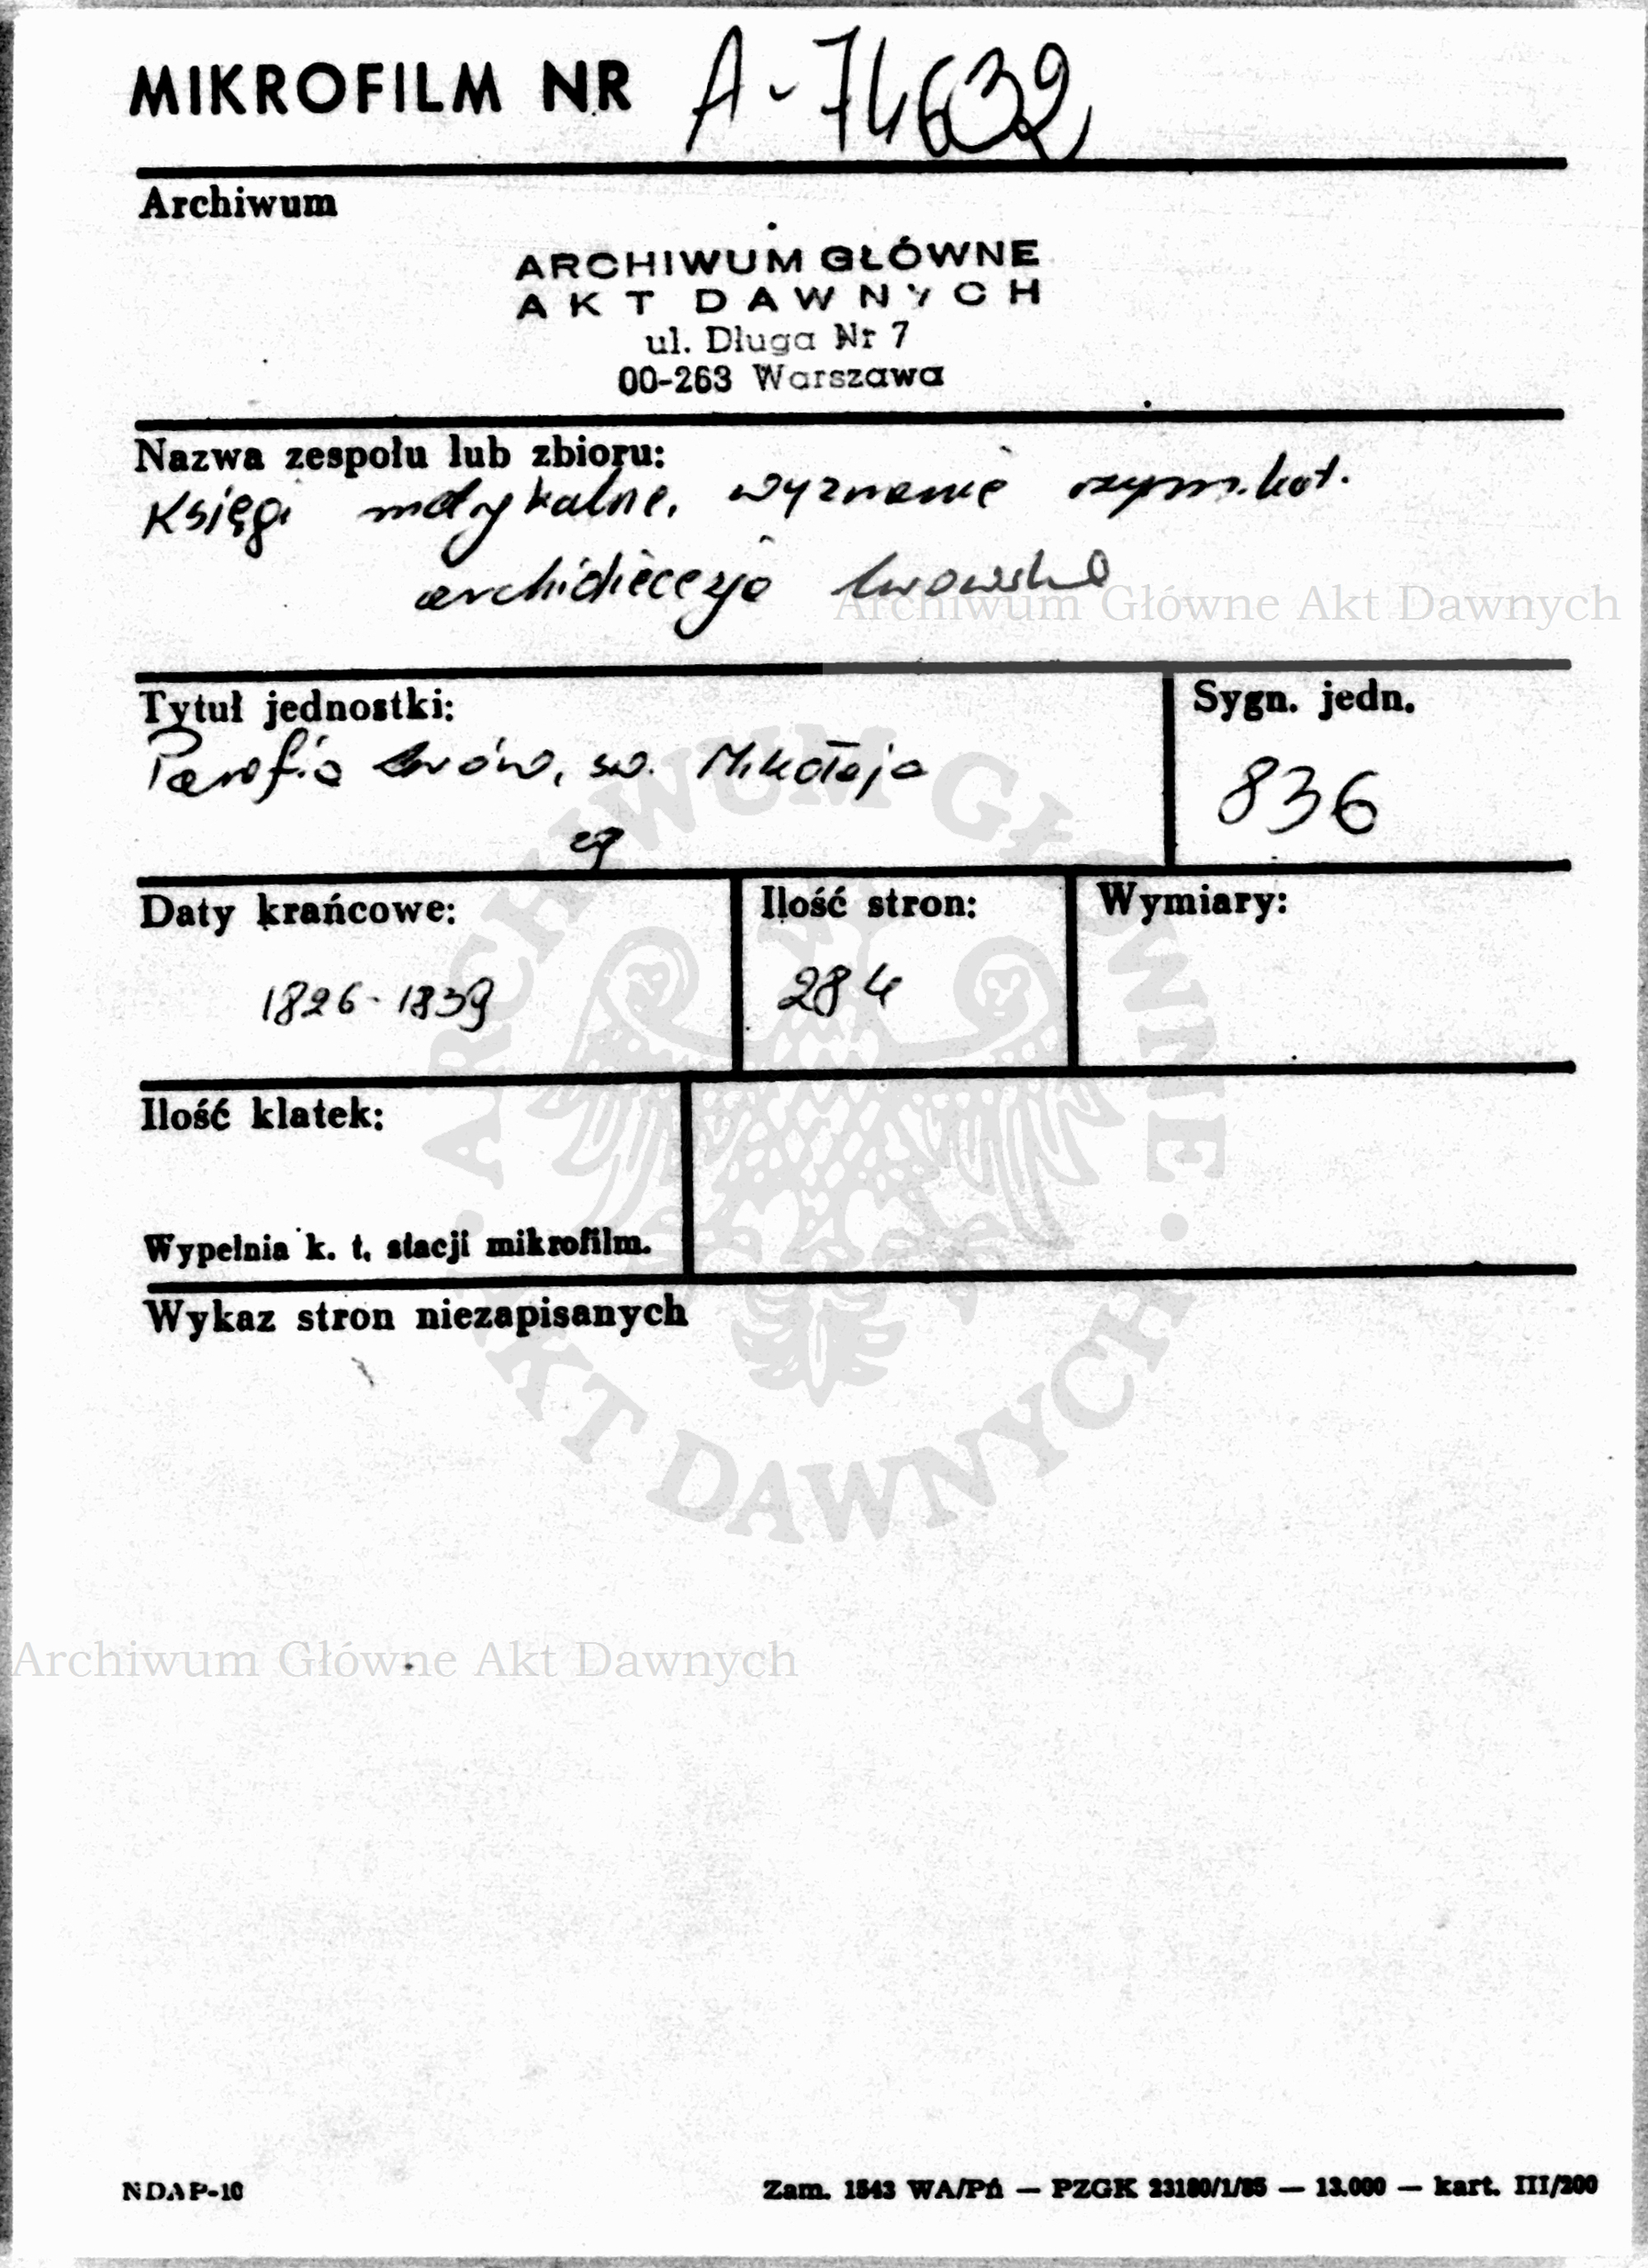 MIKROFILM NR A-74632
Archiwum
ARCHIWUM GŁÓWNE
AKT DAWNYCH
ul. Długa Nr 7
00-263 Warszawa
Nazwa zespołu lub zbioru:
Księgi metrykalne, wyznanie rzym.kat.
archidiecezja lwowska
Archiwum Główne Akt Dawnych
Tytuł jednostki:
Parafia Lwów, św. Mikołaja
Sygn. jedn.
836
Daty krańcowe:
1826-1839
Ilość stron:
284
Wymiary:
Ilość klatek:
Wypełnia k. t. stacji mikrofilm.
Wykaz stron niezapisanych
ARCHIWUM GŁÓWNE · AKT DAWNYCH ·
Archiwum Główne Akt Dawnych
NDAP-10
Zam. 1543 WA/Pń — PZGK 23180/1/85 — 13.000 — kart. III/200